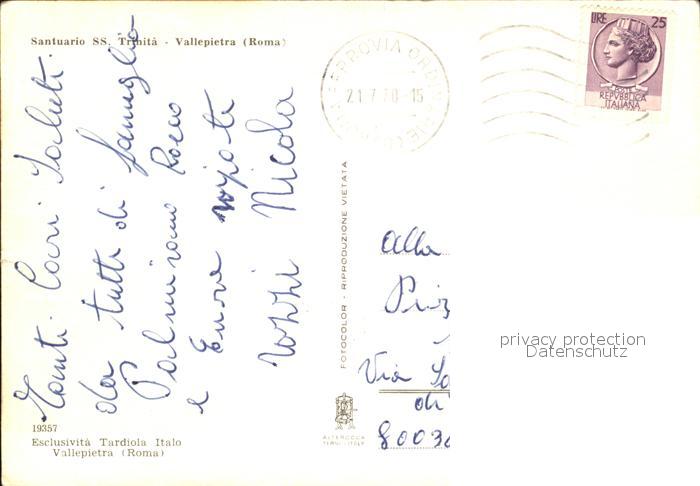 Santuario SS. Trinità - Vallepietra (Roma)
Tanti Cari Saluti
da tutti di famiglia
Palmirano Rocco
e Enova nipote
Nicola
19357
Esclusività Tardiola Italo
Vallepietra (Roma)
FOTOCOLOR - RIPRODUZIONE VIETATA
ALTEROCCA
TERNI - ITALY
FERROVIA
21.7.70-15
LIRE 25
REPUBBLICA
ITALIANA
Alla
Via
di
80030
privacy protection
Datenschutz